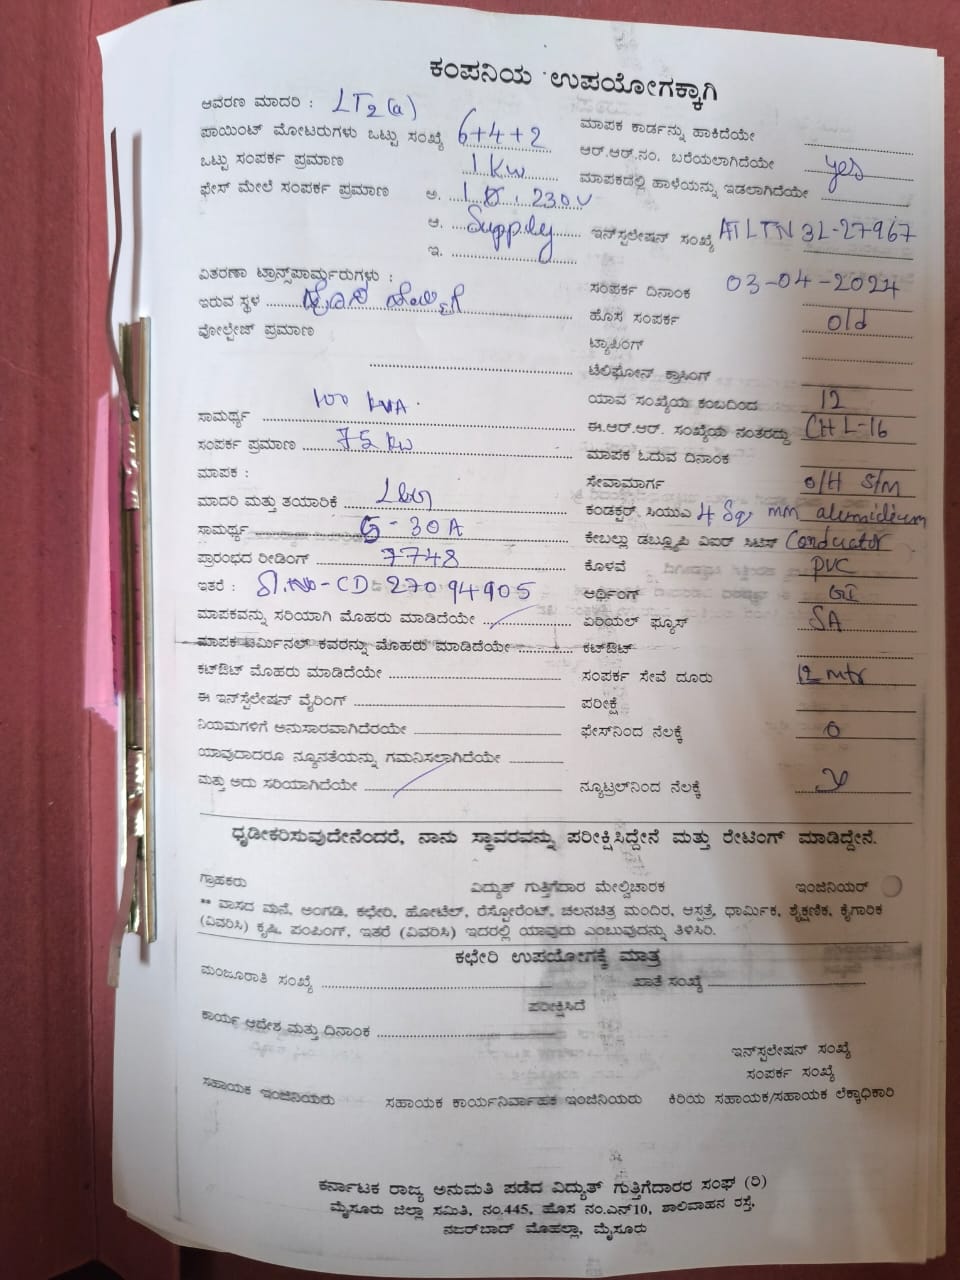 ಕಂಪನಿಯ ಉಪಯೋಗಕ್ಕಾಗಿ
ಆವರಣ ಮಾದರಿ : LT2(a)
ಪಾಯಿಂಟ್ ಮೋಟರುಗಳು ಒಟ್ಟು ಸಂಖ್ಯೆ 6+4+2
ಮಾಪಕ ಕಾರ್ಡನ್ನು ಹಾಕಿದೆಯೇ
ಒಟ್ಟು ಸಂಪರ್ಕ ಪ್ರಮಾಣ 1 Kw
ಆರ್.ಆರ್.ನಂ. ಬರೆಯಲಾಗಿದೆಯೇ yes
ಫೇಸ್ ಮೇಲೆ ಸಂಪರ್ಕ ಪ್ರಮಾಣ ಅ. 1 Ø, 230V
ಮಾಪಕದಲ್ಲಿ ಹಾಳೆಯನ್ನು ಇಡಲಾಗಿದೆಯೇ
ಆ. Supply
ಇನ್‌ಸ್ಟಲೇಷನ್ ಸಂಖ್ಯೆ ATLTN3L-27967
ಇ.
ವಿತರಣಾ ಟ್ರಾನ್ಸ್‌ಪಾರ್ಮ್ರುರುಗಳು :
ಸಂಪರ್ಕ ದಿನಾಂಕ 03-04-2024
ಇರುವ ಸ್ಥಳ
ಹೊಸ ಸಂಪರ್ಕ old
ವೋಲ್ಟೇಜ್ ಪ್ರಮಾಣ
ಟ್ಯಾಪಿಂಗ್
ಟೆಲಿಫೋನ್ ಕ್ರಾಸಿಂಗ್
ಸಾಮರ್ಥ್ಯ 100 KVA
ಯಾವ ಸಂಖ್ಯೆಯ ಕಂಬದಿಂದ 12
ಸಂಪರ್ಕ ಪ್ರಮಾಣ 75 Kw
ಈ.ಆರ್.ಆರ್. ಸಂಖ್ಯೆಯ ನಂತರದ್ದು CHL-16
ಮಾಪಕ :
ಮಾಪಕ ಓದುವ ದಿನಾಂಕ
ಮಾದರಿ ಮತ್ತು ತಯಾರಿಕೆ L&G
ಸೇವಾಮಾರ್ಗ O/H S/M
ಸಾಮರ್ಥ್ಯ 5-30A
ಕಂಡಕ್ಟರ್. ಸಿಯುಎ 4 Sq mm alumidium
ಪ್ರಾರಂಭದ ರೀಡಿಂಗ್ 7748
ಕೇಬಲ್ಲು ಡಬ್ಲ್ಯೂಪಿ ವಿಐರ್ ಸಿಟಿಸ್ Conductor
ಇತರೆ : Sl.No-CD 27094905
ಕೊಳವೆ PVC
ಆರ್ಥಿಂಗ್ GI
ಮಾಪಕವನ್ನು ಸರಿಯಾಗಿ ಮೊಹರು ಮಾಡಿದೆಯೇ
ಏರಿಯಲ್ ಫ್ಯೂಸ್ 5A
ಮಾಪಕ ಟರ್ಮಿನಲ್ ಕವರನ್ನು ಮೊಹರು ಮಾಡಿದೆಯೇ
ಕಟ್‌ಔಟ್
ಕಟ್‌ಔಟ್ ಮೊಹರು ಮಾಡಿದೆಯೇ
ಸಂಪರ್ಕ ಸೇವೆ ದೂರು 12 mtr
ಈ ಇನ್‌ಸ್ಟಲೇಷನ್ ವೈರಿಂಗ್
ಪರೀಕ್ಷೆ
ನಿಯಮಗಳಿಗೆ ಅನುಸಾರವಾಗಿದೆರಯೇ
ಫೇಸ್‌ನಿಂದ ನೆಲಕ್ಕೆ 0
ಯಾವುದಾದರೂ ನ್ಯೂನತೆಯನ್ನು ಗಮನಿಸಲಾಗಿದೆಯೇ
ಮತ್ತು ಅದು ಸರಿಯಾಗಿದೆಯೇ
ನ್ಯೂಟ್ರಲ್‌ನಿಂದ ನೆಲಕ್ಕೆ
ಧೃಡೀಕರಿಸುವುದೇನೆಂದರೆ, ನಾನು ಸ್ಥಾವರವನ್ನು ಪರೀಕ್ಷಿಸಿದ್ದೇನೆ ಮತ್ತು ರೇಟಿಂಗ್ ಮಾಡಿದ್ದೇನೆ.
ಗ್ರಾಹಕರು ವಿದ್ಯುತ್ ಗುತ್ತಿಗೆದಾರ ಮೇಲ್ವಿಚಾರಕ ಇಂಜಿನಿಯರ್
** ವಾಸದ ಮನೆ, ಅಂಗಡಿ, ಕಛೇರಿ, ಹೋಟೆಲ್, ರೆಸ್ಟೋರೆಂಟ್, ಚಲನಚಿತ್ರ ಮಂದಿರ, ಆಸ್ಪತ್ರೆ, ಧಾರ್ಮಿಕ, ಶೈಕ್ಷಣಿಕ, ಕೈಗಾರಿಕ
(ವಿವರಿಸಿ) ಕೃಷಿ, ಪಂಪಿಂಗ್, ಇತರೆ (ವಿವರಿಸಿ) ಇದರಲ್ಲಿ ಯಾವುದು ಎಂಬುವುದನ್ನು ತಿಳಿಸಿರಿ.
ಕಛೇರಿ ಉಪಯೋಗಕ್ಕೆ ಮಾತ್ರ
ಮಂಜೂರಾತಿ ಸಂಖ್ಯೆ ಖಾತೆ ಸಂಖ್ಯೆ
ಪರೀಕ್ಷಿಸಿದೆ
ಕಾರ್ಯ ಆದೇಶ ಮತ್ತು ದಿನಾಂಕ
ಇನ್‌ಸ್ಟಲೇಷನ್ ಸಂಖ್ಯೆ
ಸಂಪರ್ಕ ಸಂಖ್ಯೆ
ಸಹಾಯಕ ಇಂಜಿನಿಯರು ಸಹಾಯಕ ಕಾರ್ಯನಿರ್ವಾಹಕ ಇಂಜಿನಿಯರು ಕಿರಿಯ ಸಹಾಯಕ/ಸಹಾಯಕ ಲೆಕ್ಕಾಧಿಕಾರಿ
ಕರ್ನಾಟಕ ರಾಜ್ಯ ಅನುಮತಿ ಪಡೆದ ವಿದ್ಯುತ್ ಗುತ್ತಿಗೆದಾರರ ಸಂಘ (ರಿ)
ಮೈಸೂರು ಜಿಲ್ಲಾ ಸಮಿತಿ, ನಂ.445, ಹೊಸ ನಂ.ಎನ್10, ಶಾಲಿವಾಹನ ರಸ್ತೆ,
ನಜರ್‌ಬಾದ್ ಮೊಹಲ್ಲಾ, ಮೈಸೂರು